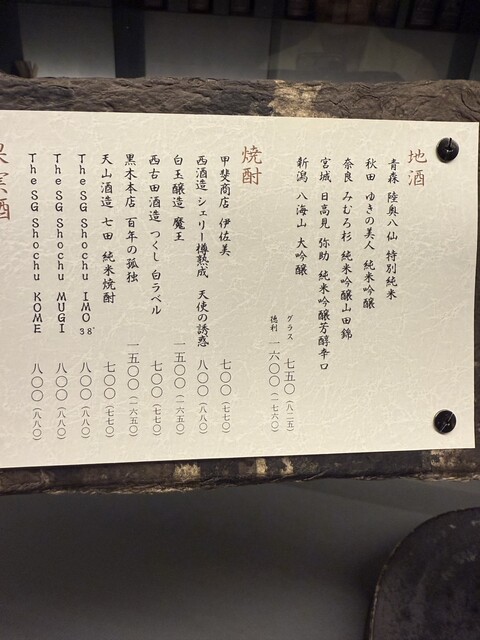 地酒
青森 陸奥八仙 特別純米
秋田 ゆきの美人 純米吟醸
奈良 みむろ杉 純米吟醸山田錦
宮城 日高見 弥助 純米吟醸芳醇辛口
新潟 八海山 大吟醸
グラス 七五〇(八二五)
徳利 一六〇〇(一七六〇)
焼酎
甲斐商店 伊佐美 七〇〇(七七〇)
西酒造 シェリー樽熟成 天使の誘惑 八〇〇(八八〇)
白玉醸造 魔王 一五〇〇(一六五〇)
西古田酒造 つくし 白ラベル 七〇〇(七七〇)
黒木本店 百年の孤独 一五〇〇(一六五〇)
天山酒造 七田 純米焼酎 七〇〇(七七〇)
The SG Shochu IMO 38° 八〇〇(八八〇)
The SG Shochu MUGI 八〇〇(八八〇)
The SG Shochu KOME 八〇〇(八八〇)
果実酒